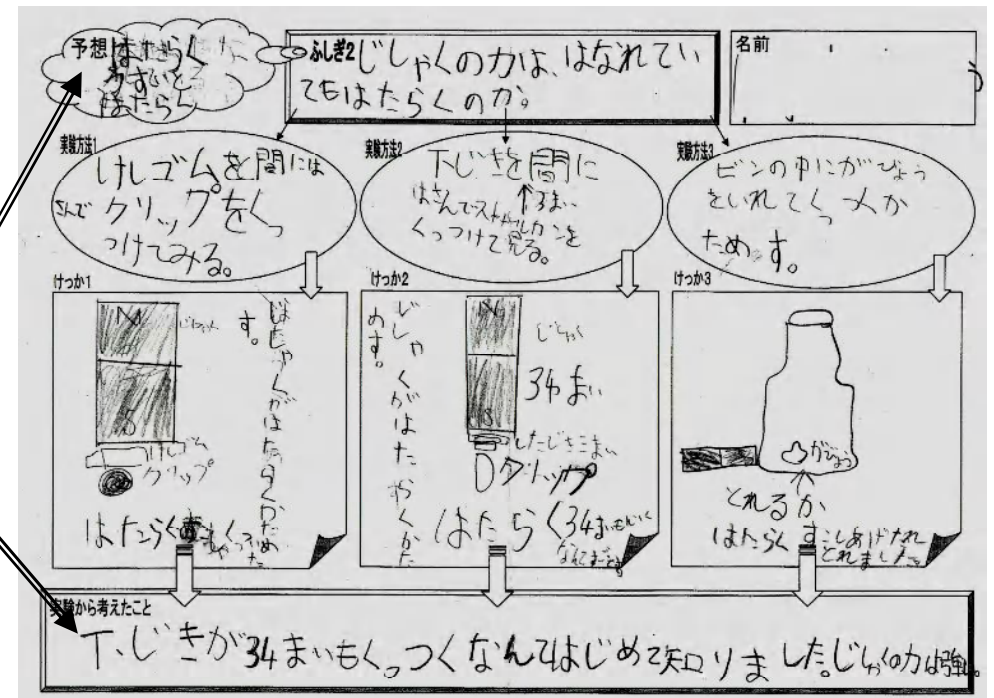 予想 はたらく
はたらく
ふしぎ2 じしゃくの力は、はなれてい
てもはたらくのか。
名前
実験方法1
けしゴムを間には
さんで クリップをく
っつけてみる。
実験方法2
下じきを間に
はさんで
くっつけて見る。
実験方法3
ビンの中にがびょう
をいれてくっつくか
ためす。
けっか1
N
じしゃく
S
けしゴム
クリップ
はたらく
けっか2
じしゃくがはたらくかた
めす。
N
じしゃく
34まい
S
したじき
クリップ
はたらく 34まい
けっか3
がびょう
とれるか
はたらく すこしあげたれ
とれました。
実験から考えたこと
下じきが34まいもくっつくなんてはじめて知りました。じしゃくの力は強い。